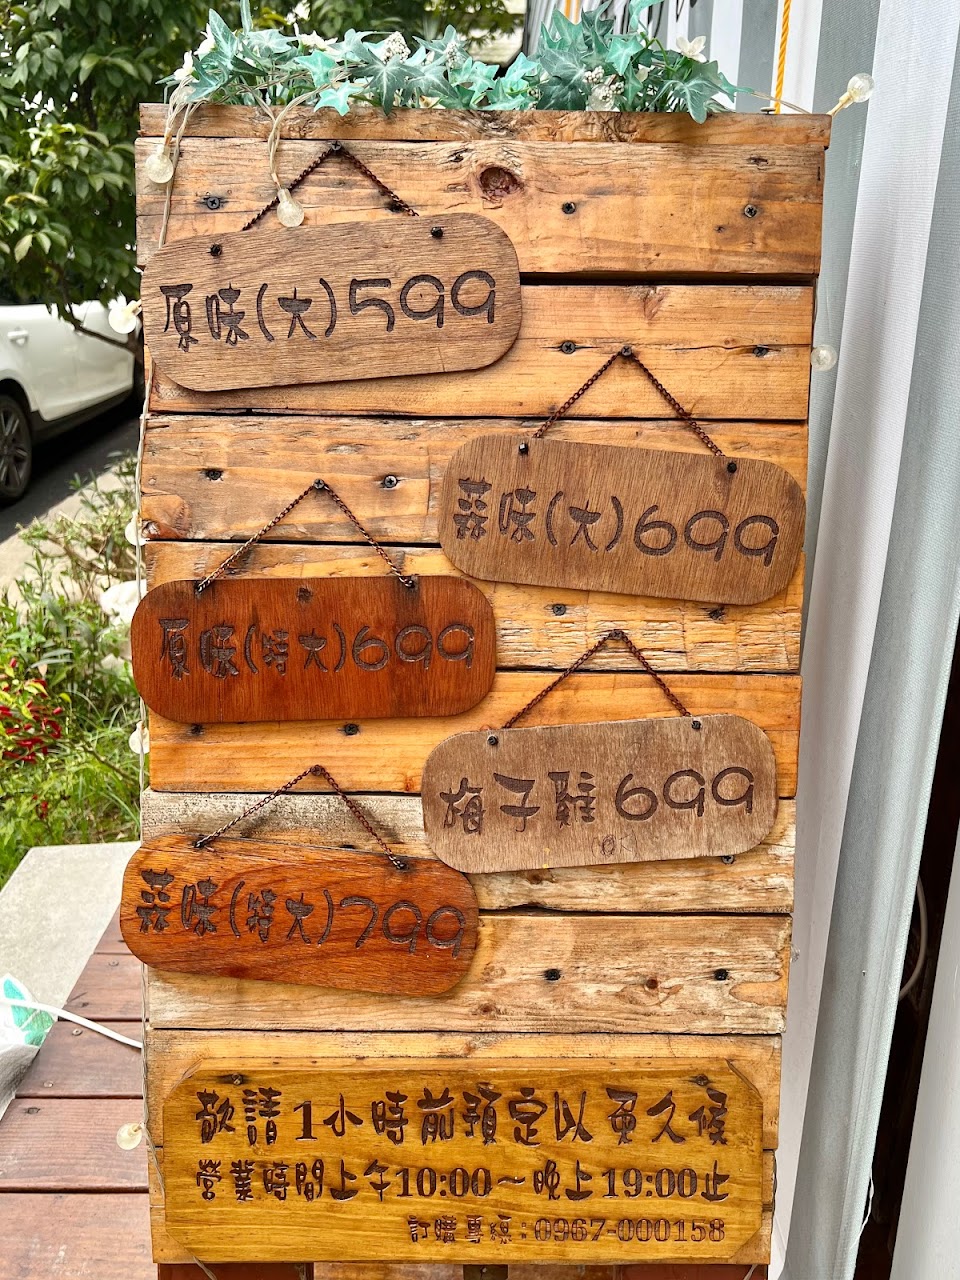 原味(大)599
蒜味(大)699
原味(特大)699
梅子雞699
蒜味(特大)799
敬請1小時前預定以免久候
營業時間上午10:00～晚上19:00止
訂購專線:0967-000158